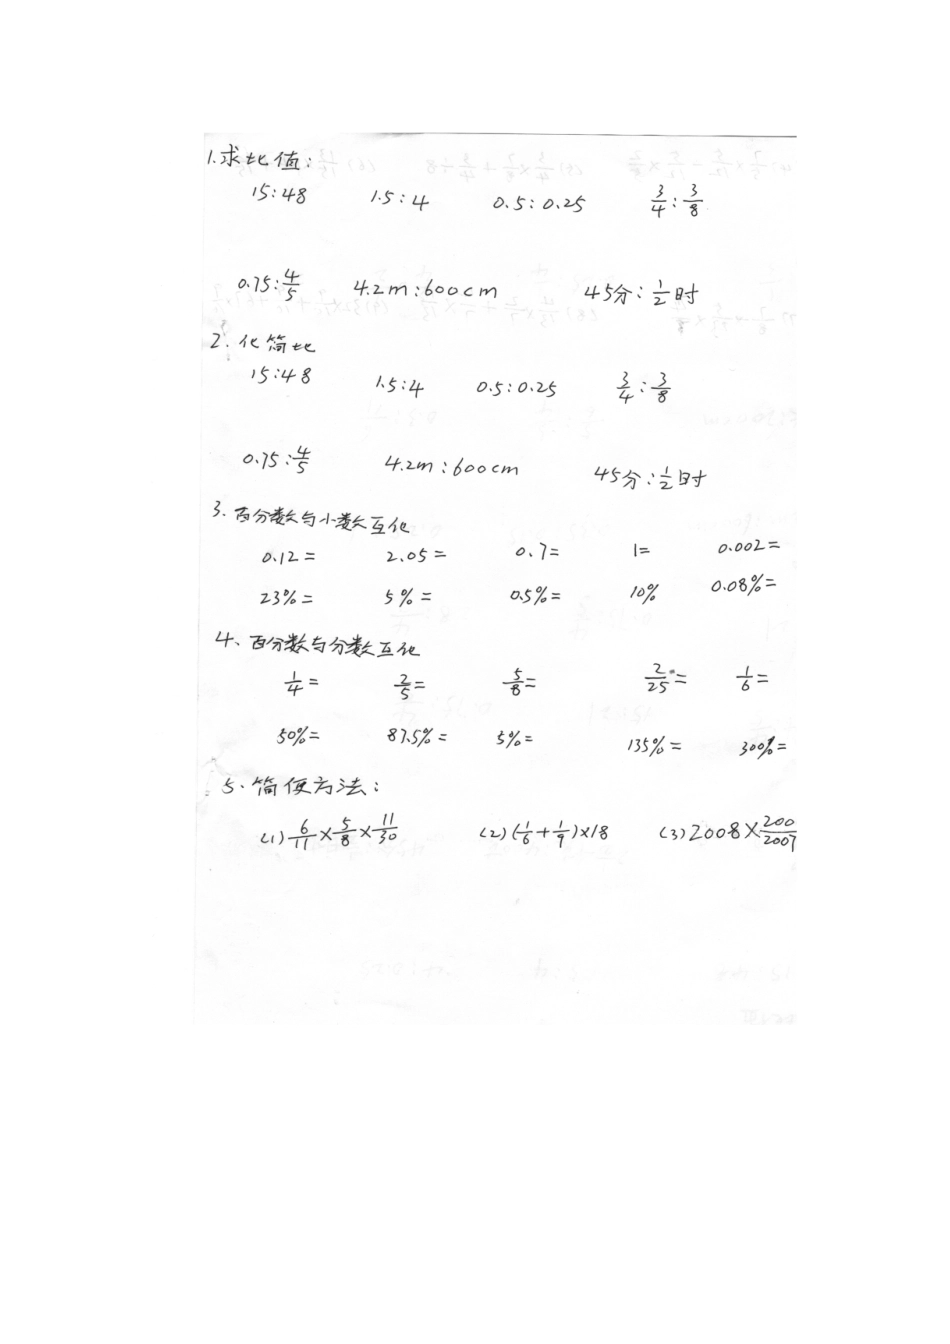 1.求比值:
15:48 1.5:4 0.5:0.25 3/4:3/8
0.75:4/5 4.2m:600cm 45分:1/2时
2.化简比
15:48 1.5:4 0.5:0.25 3/4:3/8
0.75:4/5 4.2m:600cm 45分:1/2时
3.百分数与小数互化
0.12= 2.05= 0.7= 1= 0.002=
23%= 5%= 0.5%= 10% 0.08%=
4、百分数与分数互化
1/4= 2/5= 5/8= 2/25= 1/6=
50%= 87.5%= 5%= 135%= 300%=
5.简便方法:
(1)6/11×5/8×11/30 (2)(1/6+1/9)×18 (3)2008×200/2007